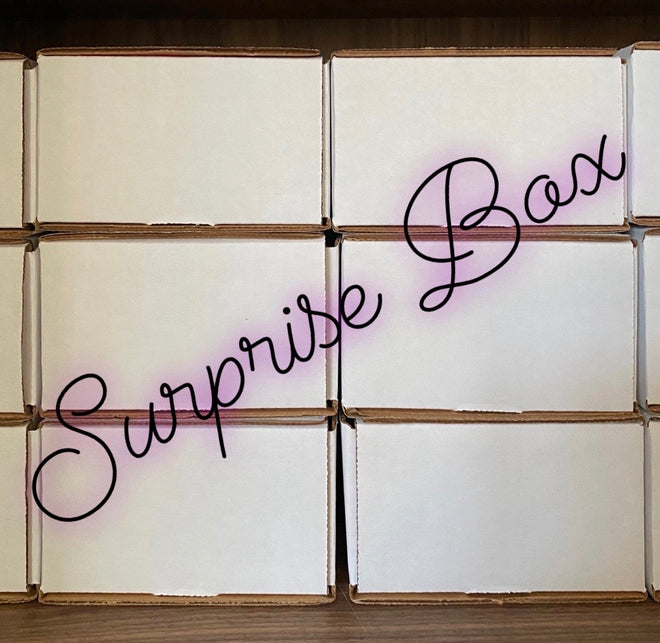 Surprise Box